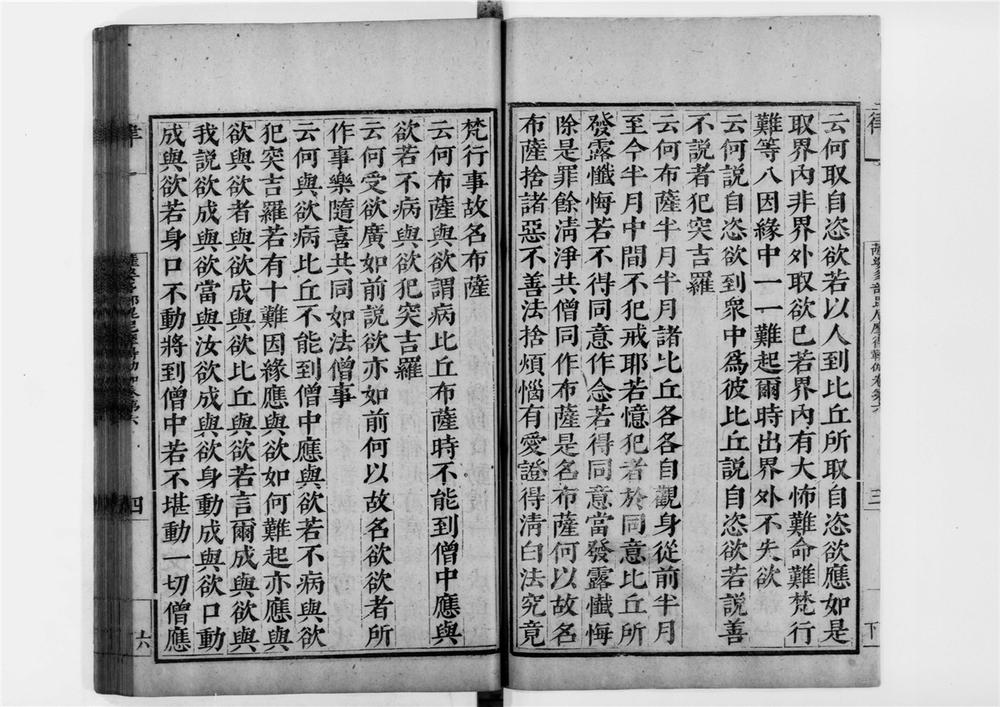 云何取自恣欲若以人到比丘所取自恣欲應如是
取界內非界外取欲已若界內有大怖難命難梵行
難等八因緣中一一難起爾時出界外不失欲
云何說自恣欲到衆中爲彼比丘說自恣欲若說善
不說者犯突吉羅
云何布薩半月半月諸比丘各各自觀身從前半月
至今半月中間不犯戒耶若憶犯者於同意比丘所
發露懺悔若不得同意作念若得同意當發露懺悔
除是罪餘清淨共僧同作布薩是名布薩何以故名
布薩捨諸惡不善法捨煩惱有愛證得清白法究竟
梵行事故名布薩
云何布薩與欲謂病比丘布薩時不能到僧中應與
欲若不病與欲犯突吉羅
云何受欲廣如前說欲亦如前何以故名欲欲者所
作事樂隨喜共同如法僧事
云何與欲病比丘不能到僧中應與欲若不病與欲
犯突吉羅若有十難因緣應與欲如何難起亦應與
欲與欲者與欲成與欲比丘與欲若言爾成與欲與
我說欲成與欲當與汝欲成與欲身動成與欲口動
成與欲若身口不動將到僧中若不堪動一切僧應
律
三
下
四
六